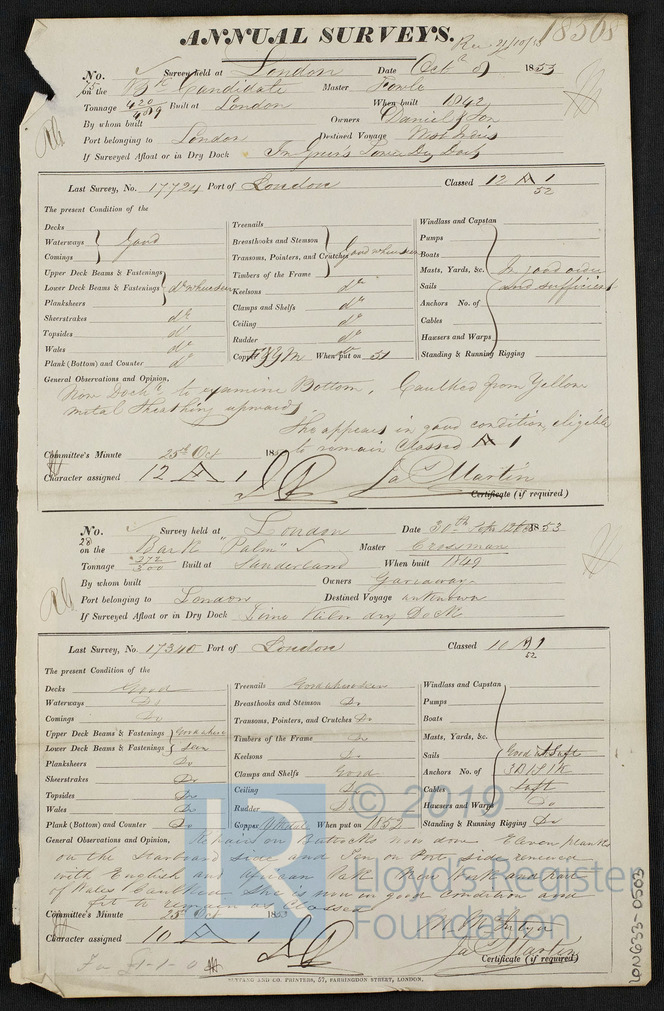 ANNUAL SURVEYS.
Rec 21/10/53
18508
No. 75 Survey held at London Date Oct 8 1853
on the Bk Candidate Master Fowle
Tonnage 420 489 Built at London When built 1842
By whom built Owners Daniel & Son
Port belonging to London Destined Voyage West Indies
If Surveyed Afloat or in Dry Dock In Green's Lower Dry Dock
Last Survey, No. 17724 Port of London Classed 12 A 1 52
The present Condition of the
Decks
Waterways } Good
Comings
Upper Deck Beams & Fastenings
Lower Deck Beams & Fastenings } do where seen
Planksheers
Sheerstrakes do
Topsides do
Wales do
Plank (Bottom) and Counter do
Treenails
Breasthooks and Stemson
Transoms, Pointers, and Crutches } Good where seen
Timbers of the Frame
Keelsons do
Clamps and Shelfs do
Ceiling do
Rudder do
Copper Y M When put on 51
Windlass and Capstan
Pumps
Boats
Masts, Yards, &c. In good order
Sails and sufficient
Anchors No. of
Cables
Hawsers and Warps
Standing & Running Rigging
General Observations and Opinion,
Now Dockd to examine Bottom, Caulked from Yellow
metal Sheathing upwards
She appears in good condition, eligible
to remain Classed A 1
Committee's Minute 25th Oct 185
Character assigned 12 A 1 Jas Martin
Certificate (if required)
No. 28 Survey held at London Date 30th 1853
on the Bark "Palm" Master Crossman
Tonnage 272 300 Built at Sunderland When built 1849
By whom built Owners Garraway
Port belonging to London Destined Voyage unknown
If Surveyed Afloat or in Dry Dock Lime Kiln dry Dock
Last Survey, No. 17340 Port of London Classed 10 A 1 52
The present Condition of the
Decks Good
Waterways Do
Comings Do
Upper Deck Beams & Fastenings } Good where
Lower Deck Beams & Fastenings } seen
Planksheers Do
Sheerstrakes Do
Topsides Do
Wales Do
Plank (Bottom) and Counter Do
Treenails Good where seen
Breasthooks and Stemson Do
Transoms, Pointers, and Crutches Do
Timbers of the Frame Do
Keelsons Do
Clamps and Shelfs Good
Ceiling Do
Rudder Do
Copper Y Metal When put on 1852
Windlass and Capstan
Pumps
Boats
Masts, Yards, &c.
Sails Good & Suft
Anchors No. of 3 B 1 S 1 K
Cables Suft
Hawsers and Warps Do
Standing & Running Rigging Do
General Observations and Opinion, Repairs on Buttocks now done Eleven planks
on the Starboard side and Ten on Port side renewed
with English and African Oak. New Keel and part
of Wales Caulked She is now in good condition and
fit to remain as Classed
Committee's Minute 25th Oct 1853
Character assigned 10 A 1 Jas Martin
Certificate (if required)
Fee £1-1-0
AND CO. PRINTERS, 57, FARRINGDON STREET, LONDON.
LON633-0503
© 2019
Lloyd's Register
Foundation